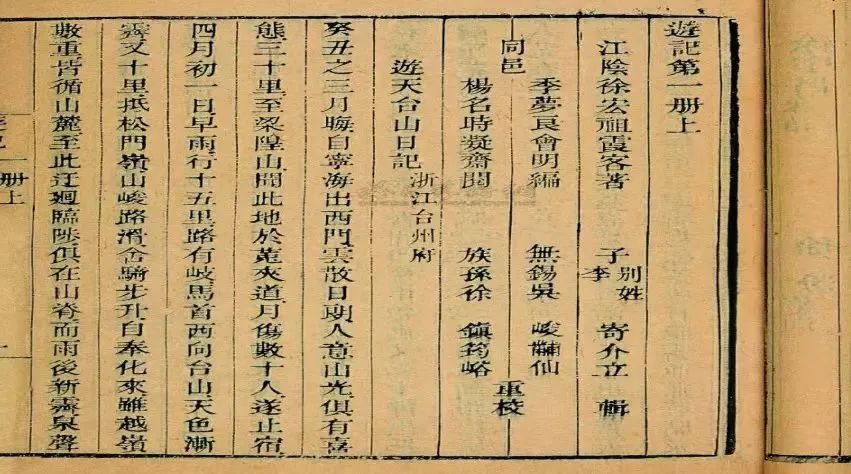 遊記第一册上
江陰徐宏祖霞客著 子李別姓 寄介立 輯
同邑
季夢良會明編 無錫吳 峻黼仙
楊名時凝齋閱 族孫徐 鎮筠峪
重校
遊天台山日記 浙江台州府
癸丑之三月晦自寧海出西門雲散日朗人意山光俱有喜
態三十里至梁隍山聞此地於菟夾道月傷數十人遂止宿
四月初一日早雨行十五里路有岐馬首西向台山天色漸
霽又十里抵松門嶺山峻路滑舍騎步升自奉化來雖越嶺
數重皆循山麓至此迂廻臨陟俱在山脊而雨後新霽泉聲
册上